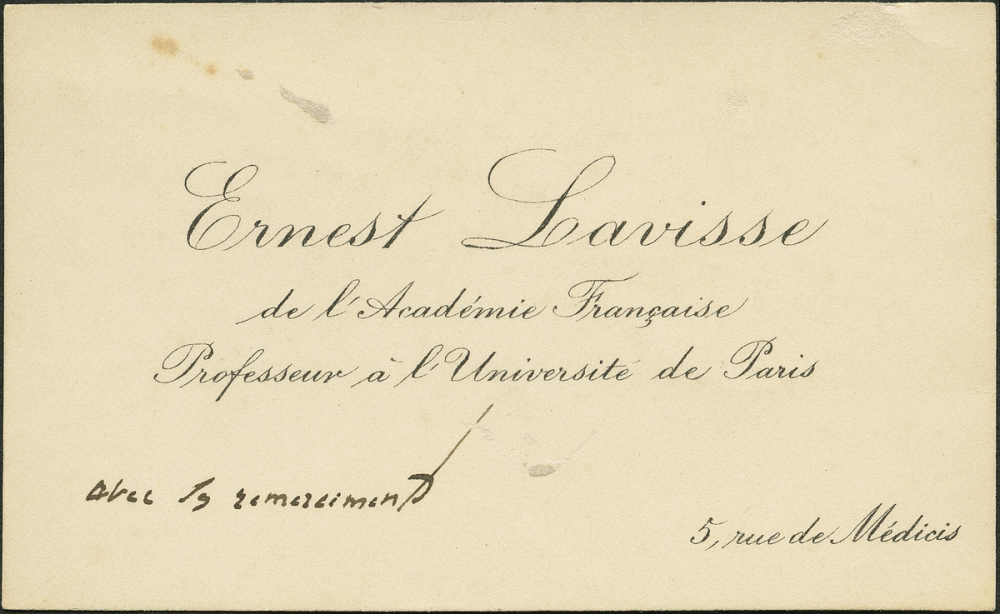 Ernest Lavisse
de l'Académie Française
Professeur à l'Université de Paris
avec ses remerciments
5, rue de Médicis